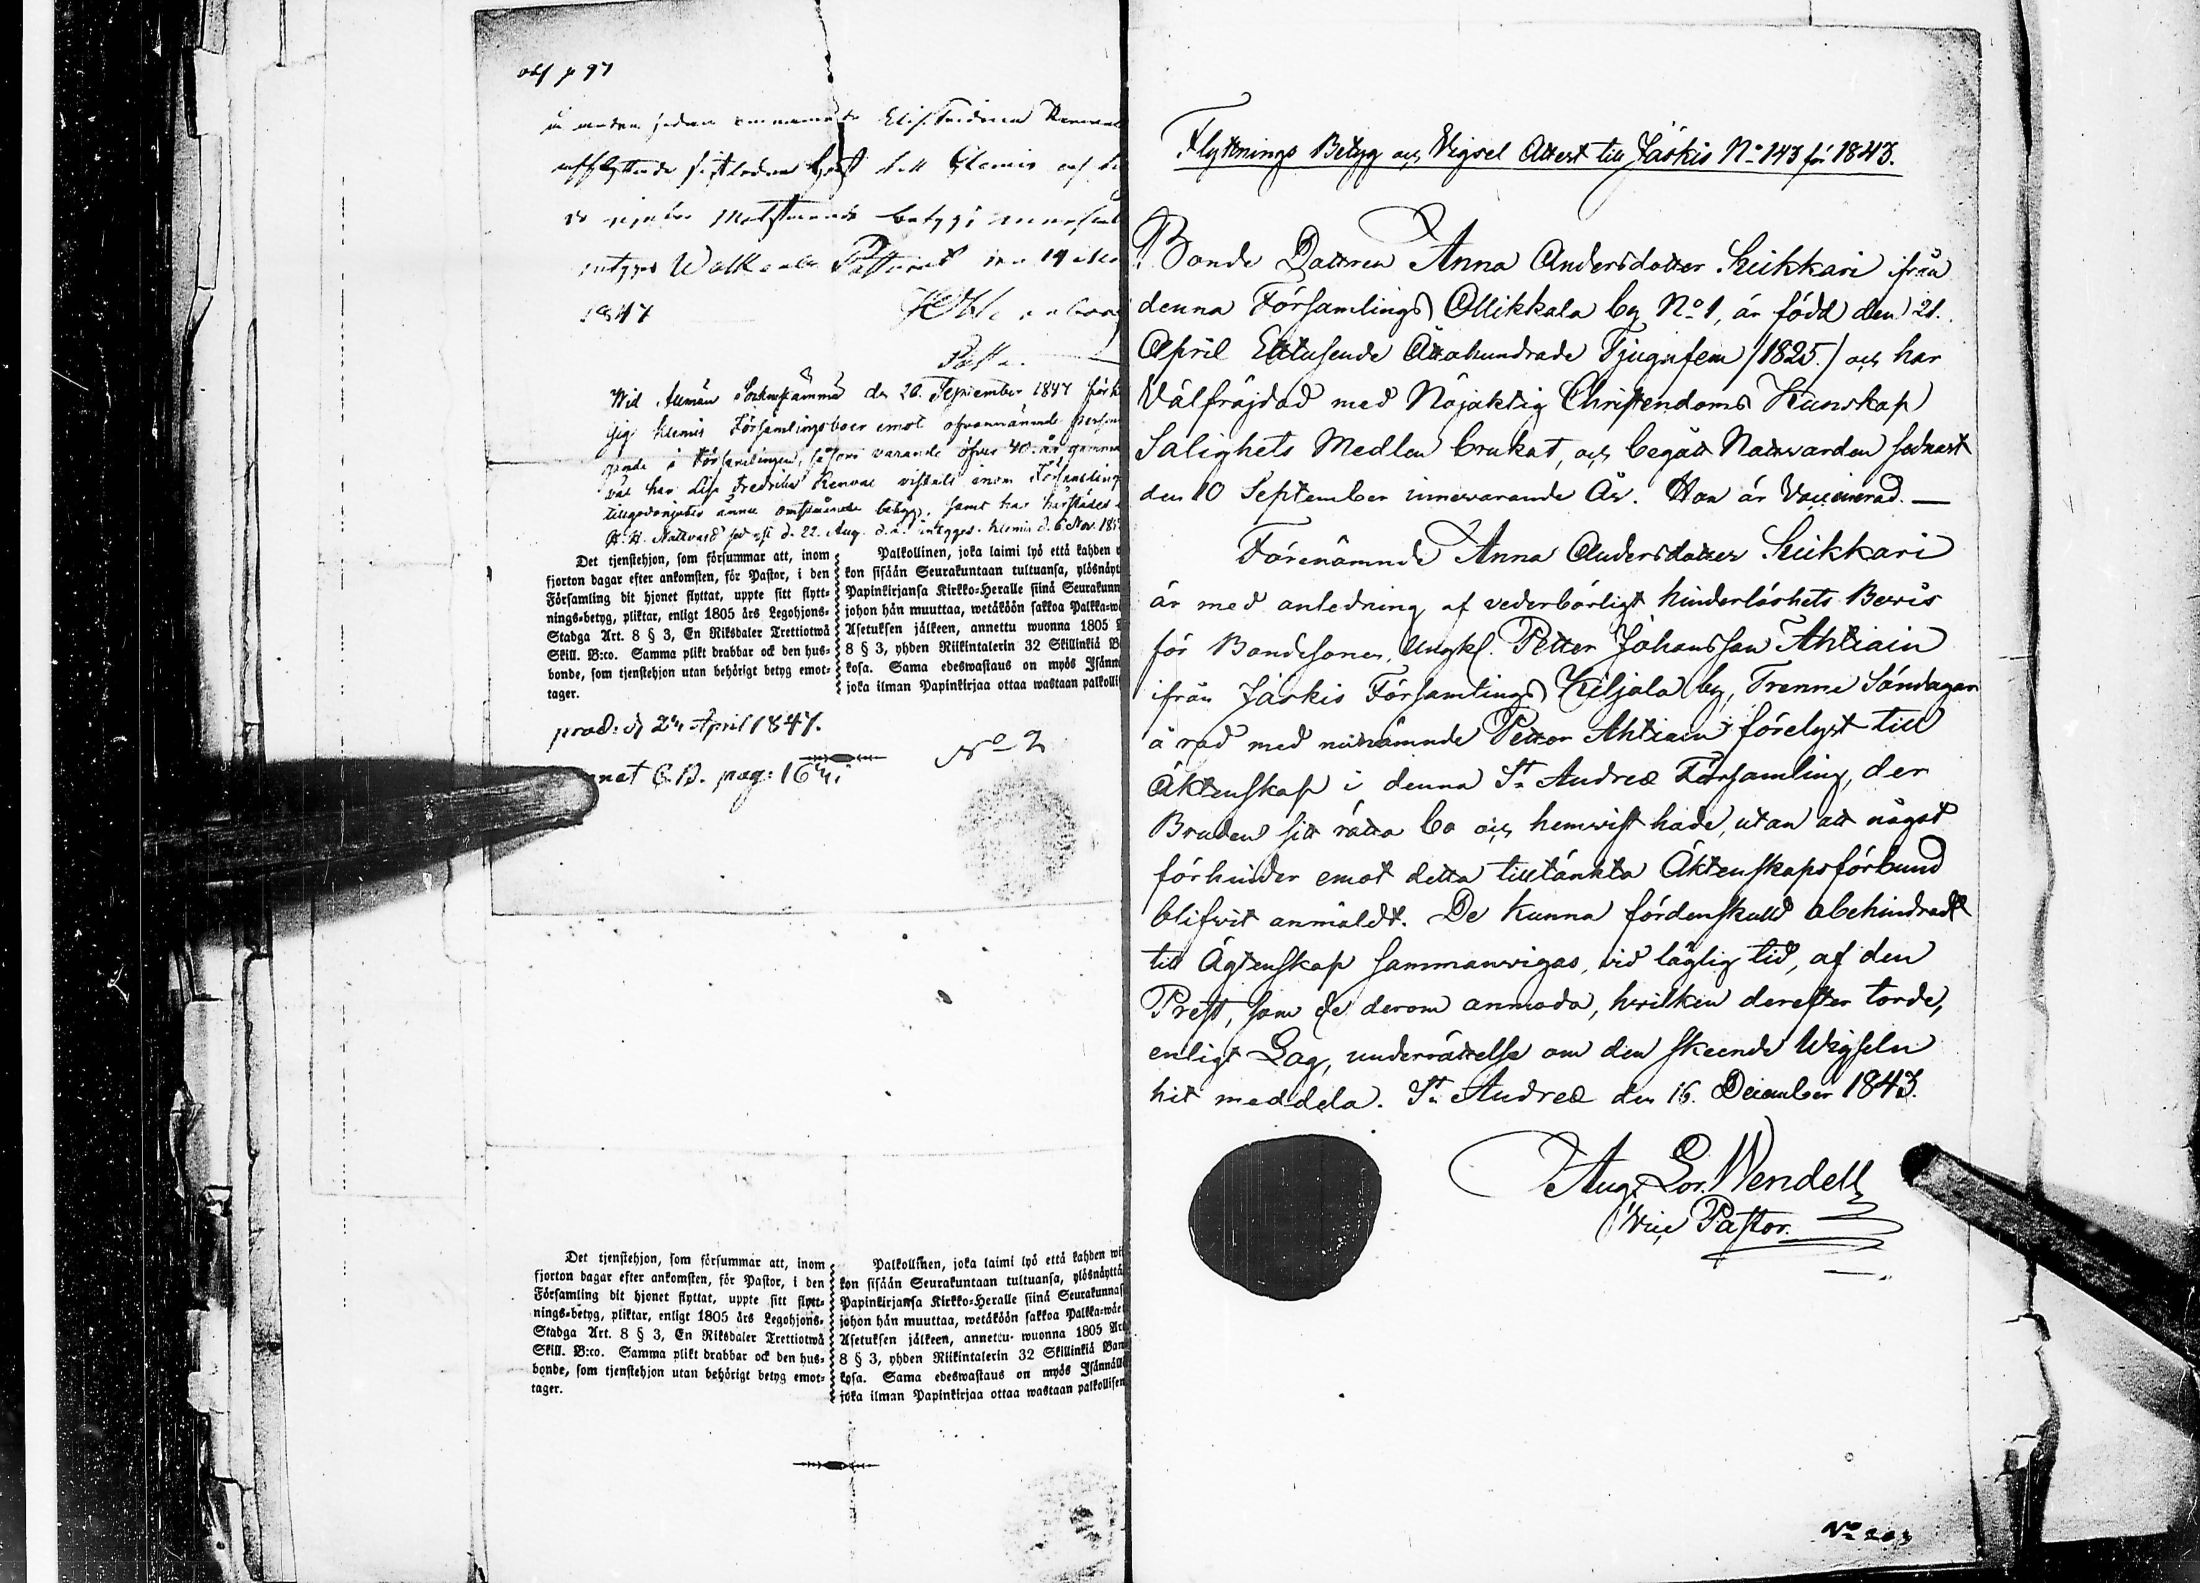 å medan sedan
afflyttade
betygs
intygas Walkeala Pastorat den 19
1847
Wid Allmän Sockenstämma den 26. September 1847
sig Klemis Församlingsboer emot ofvannämnde
i Församlingen, såsom varande öfver 40. år gamma
har Lisa Fredrika Renvall vistats inom Församling
ännu omstående betyg, samt har härstädes
H. H. Nattvard sednast d. 22. Aug. d. å. intygas. Klemis d. 6 Nov.
Det tjenstehjon, som försummar att, inom
fjorton dagar efter ankomsten, för Pastor, i den
Församling dit hjonet flyttat, uppte sitt flytt-
nings-betyg, pliktar, enligt 1805 års Legohjons-
Stadga Art. 8 § 3, En Riksdaler Trettiotwå
Skill. B:co. Samma plikt drabbar ock den hus-
bonde, som tjenstehjon utan behörigt betyg emot-
tager.
Palkollinen, joka laimi lyö että kahden
kon sisään Seurakuntaan tultuansa, ylösnäyt
Papinkirjansa Kirkko-Heralle siinä Seurakunn
johon hän muuttaa, wetäköön sakkoa Palkka-wä
Asetuksen jälkeen, annettu wuonna 1805
8 § 3, yhden Riikintalerin 32 Skillinkiä B
kosa. Sama edeswastaus on myös Isänn
joka ilman Papinkirjaa ottaa wastaan palkolli
prod: d 24 April 1847.
No 2
C.B. pag: 164
Det tjenstehjon, som försummar att, inom
fjorton dagar efter ankomsten, för Pastor, i den
Församling dit hjonet flyttat, uppte sitt flytt-
nings-betyg, pliktar, enligt 1805 års Legohjons-
Stadga Art. 8 § 3, En Riksdaler Trettiotwå
Skill. B:co. Samma plikt drabbar ock den hus-
bonde, som tjenstehjon utan behörigt betyg emot-
tager.
Palkollinen, joka laimi lyö että kahden wi
kon sisään Seurakuntaan tultuansa, ylösnäyttä
Papinkirjansa Kirkko-Heralle siinä Seurakunnas
johon hän muuttaa, wetäköön sakkoa Palkka-wäe
Asetuksen jälkeen, annettu wuonna 1805 Art
8 § 3, yhden Riikintalerin 32 Skillinkiä Ban
kosa. Sama edeswastaus on myös Isännäll
joka ilman Papinkirjaa ottaa wastaan palkollisen
Flyttnings Betyg och Vigsel Attest till Jäskis No 143 för 1843.
Bonde Dottren Anna Andersdotter Kukkari ifrån
denna Församlings Ollikkala by No 1, är född den 21.
April Ettusende Åttahundrade Tjugufem /1825./ och har
Välfräjdad med Nöjaktig Christendoms Kunskap
Salighets Medlen brukat, och begått Nattvarden sednast
den 10 September innevarande År. Hon är Vaccinerad. —
Förenämnde Anna Andersdotter Kukkari
är med anledning af vederbörligt hinderlöshets Bevis
för Bondesonen, Ungkl. Petter Johansson Ahtiain
ifrån Jäskis Församlings Kiljala by, Trenne Söndagar
å rad med nunämnde Petter Ahtiain förelyst till
Äktenskap i denna St Andreæ Församling, der
Bruden sitt rätta bo och hemvist hade, utan att något
förhinder emot detta tilltänkta Äktenskapsförbund
blifvit anmäldt. De kunna fördenskull obehindradt
till Ägtenskap sammanvigas, vid läglig tid, af den
Prest, som de derom anmoda, hvilken derefter torde,
enligt Lag, underrättelse om den skeende Wigseln
hit meddela. St Andreæ den 16. December 1843.
Aug. Lor. Wendell
Vice Pastor.